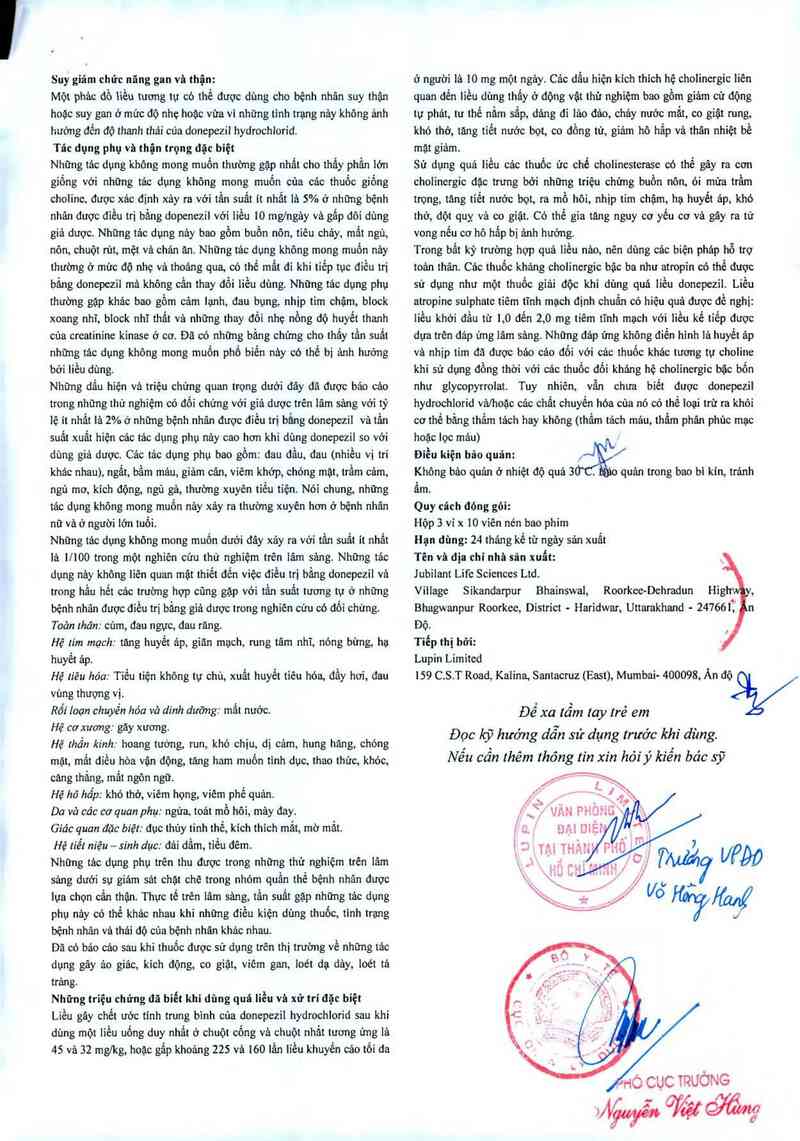 Suy giảm chức năng gan và thận:
Một phác đồ liều tương tự có thể được dùng cho bệnh nhân suy thận
hoặc suy gan ở mức độ nhẹ hoặc vừa vì những tình trạng này không ảnh
hưởng đến độ thanh thải của donepezil hydrochlorid.
Tác dụng phụ và thận trọng đặc biệt
Những tác dụng không mong muốn thường gặp nhất cho thấy phần lớn
giống với những tác dụng không mong muốn của các thuốc giống
choline, được xác định xảy ra với tần suất ít nhất là 5% ở những bệnh
nhân được điều trị bằng dopenezil với liều 10 mg/ngày và gấp đôi dùng
giả dược. Những tác dụng này bao gồm buồn nôn, tiêu chảy, mất ngủ,
nôn, chuột rút, mệt và chán ăn. Những tác dụng không mong muốn này
thường ở mức độ nhẹ và thoáng qua, có thể mất đi khi tiếp tục điều trị
bằng donepezil mà không cần thay đổi liều dùng. Những tác dụng phụ
thường gặp khác bao gồm cảm lạnh, đau bụng, nhịp tim chậm, block
xoang nhĩ, block nhĩ thất và những thay đổi nhẹ nồng độ huyết thanh
của creatinine kinase ở cơ. Đã có những bằng chứng cho thấy tần suất
những tác dụng không mong muốn phổ biến này có thể bị ảnh hưởng
bởi liều dùng.
Những dấu hiện và triệu chứng quan trọng dưới đây đã được báo cáo
trong những thử nghiệm có đối chứng với giả dược trên lâm sàng với tỷ
lệ ít nhất là 2% ở những bệnh nhân được điều trị bằng donepezil và tần
suất xuất hiện các tác dụng phụ này cao hơn khi dùng donepezil so với
dùng giả dược. Các tác dụng phụ bao gồm: đau đầu, đau (nhiều vị trí
khác nhau), ngất, bầm máu, giảm cân, viêm khớp, chóng mặt, trầm cảm,
ngủ mơ, kích động, ngủ gà, thường xuyên tiểu tiện. Nói chung, những
tác dụng không mong muốn này xảy ra thường xuyên hơn ở bệnh nhân
nữ và ở người lớn tuổi.
Những tác dụng không mong muốn dưới đây xảy ra với tần suất ít nhất
là 1/100 trong một nghiên cứu thử nghiệm trên lâm sàng. Những tác
dụng này không liên quan mật thiết đến việc điều trị bằng donepezil và
trong hầu hết các trường hợp cũng gặp với tần suất tương tự ở những
bệnh nhân được điều trị bằng giả dược trong nghiên cứu có đối chứng.
Toàn thân: cúm, đau ngực, đau răng.
Hệ tim mạch: tăng huyết áp, giãn mạch, rung tâm nhĩ, nóng bừng, hạ
huyết áp.
Hệ tiêu hóa: Tiểu tiện không tự chủ, xuất huyết tiêu hóa, đầy hơi, đau
vùng thượng vị.
Rối loạn chuyển hóa và dinh dưỡng: mất nước.
Hệ cơ xương: gãy xương.
Hệ thần kinh: hoang tưởng, run, khó chịu, dị cảm, hung hăng, chóng
mặt, mất điều hòa vận động, tăng ham muốn tình dục, thao thức, khóc,
căng thẳng, mất ngôn ngữ.
Hệ hô hấp: khó thở, viêm họng, viêm phế quản.
Da và các cơ quan phụ: ngứa, toát mồ hôi, mày đay.
Giác quan đặc biệt: đục thủy tinh thể, kích thích mắt, mờ mắt.
Hệ tiết niệu – sinh dục: đái dầm, tiểu đêm.
Những tác dụng phụ trên thu được trong những thử nghiệm trên lâm
sàng dưới sự giám sát chặt chẽ trong nhóm quần thể bệnh nhân được
lựa chọn cẩn thận. Thực tế trên lâm sàng, tần suất gặp những tác dụng
phụ này có thể khác nhau khi những điều kiện dùng thuốc, tình trạng
bệnh nhân và thái độ của bệnh nhân khác nhau.
Đã có báo cáo sau khi thuốc được sử dụng trên thị trường về những tác
dụng gây ảo giác, kích động, co giật, viêm gan, loét dạ dày, loét tá
tràng.
Những triệu chứng đã biết khi dùng quá liều và xử trí đặc biệt
Liều gây chết ước tính trung bình của donepezil hydrochlorid sau khi
dùng một liều uống duy nhất ở chuột cống và chuột nhắt tương ứng là
45 và 32 mg/kg, hoặc gấp khoảng 225 và 160 lần liều khuyến cáo tối đa
ở người là 10 mg một ngày. Các dấu hiện kích thích hệ cholinergic liên
quan đến liều dùng thấy ở động vật thử nghiệm bao gồm giảm cử động
tự phát, tư thế nằm sấp, dáng đi lảo đảo, chảy nước mắt, co giật rung,
khó thở, tăng tiết nước bọt, co đồng tử, giảm hô hấp và thân nhiệt bề
mặt giảm.
Sử dụng quá liều các thuốc ức chế cholinesterase có thể gây ra cơn
cholinergic đặc trưng bởi những triệu chứng buồn nôn, ói mửa trầm
trọng, tăng tiết nước bọt, ra mồ hôi, nhịp tim chậm, hạ huyết áp, khó
thở, đột quỵ và co giật. Có thể gia tăng nguy cơ yếu cơ và gây ra tử
vong nếu cơ hô hấp bị ảnh hưởng.
Trong bất kỳ trường hợp quá liều nào, nên dùng các biện pháp hỗ trợ
toàn thân. Các thuốc kháng cholinergic bậc ba như atropin có thể được
sử dụng như một thuốc giải độc khi dùng quá liều donepezil. Liều
atropine sulphate tiêm tĩnh mạch định chuẩn có hiệu quả được đề nghị:
liều khởi đầu từ 1,0 đến 2,0 mg tiêm tĩnh mạch với liều kế tiếp được
dựa trên đáp ứng lâm sàng. Những đáp ứng không điển hình là huyết áp
và nhịp tim đã được báo cáo đối với các thuốc khác tương tự choline
khi sử dụng đồng thời với các thuốc đối kháng hệ cholinergic bậc bốn
như glycopyrrolat. Tuy nhiên, vẫn chưa biết được donepezil
hydrochlorid và/hoặc các chất chuyển hóa của nó có thể loại trừ ra khỏi
cơ thể bằng thẩm tách hay không (thẩm tách máu, thẩm phân phúc mạc
hoặc lọc máu)
Điều kiện bảo quản:
Không bảo quản ở nhiệt độ quá 30°C. Bảo quản trong bao bì kín, tránh
ẩm.
Quy cách đóng gói:
Hộp 3 vỉ x 10 viên nén bao phim
Hạn dùng: 24 tháng kể từ ngày sản xuất
Tên và địa chỉ nhà sản xuất:
Jubilant Life Sciences Ltd.
Village Sikandarpur Bhainswal, Roorkee-Dehradun Highway,
Bhagwanpur Roorkee, District - Haridwar, Uttarakhand - 247661, Ấn
Độ.
Tiếp thị bởi:
Lupin Limited
159 C.S.T Road, Kalina, Santacruz (East), Mumbai- 400098, Ấn độ
Để xa tầm tay trẻ em
Đọc kỹ hướng dẫn sử dụng trước khi dùng.
Nếu cần thêm thông tin xin hỏi ý kiến bác sỹ
LUPIN LIMITED
VĂN PHÒNG
ĐẠI DIỆN
TẠI THÀNH PHỐ
HỒ CHÍ MINH
Trưởng VPĐD
Võ Hồng Hạnh
BỘ Y TẾ
PHÓ CỤC TRƯỞNG
Nguyễn Việt Hùng